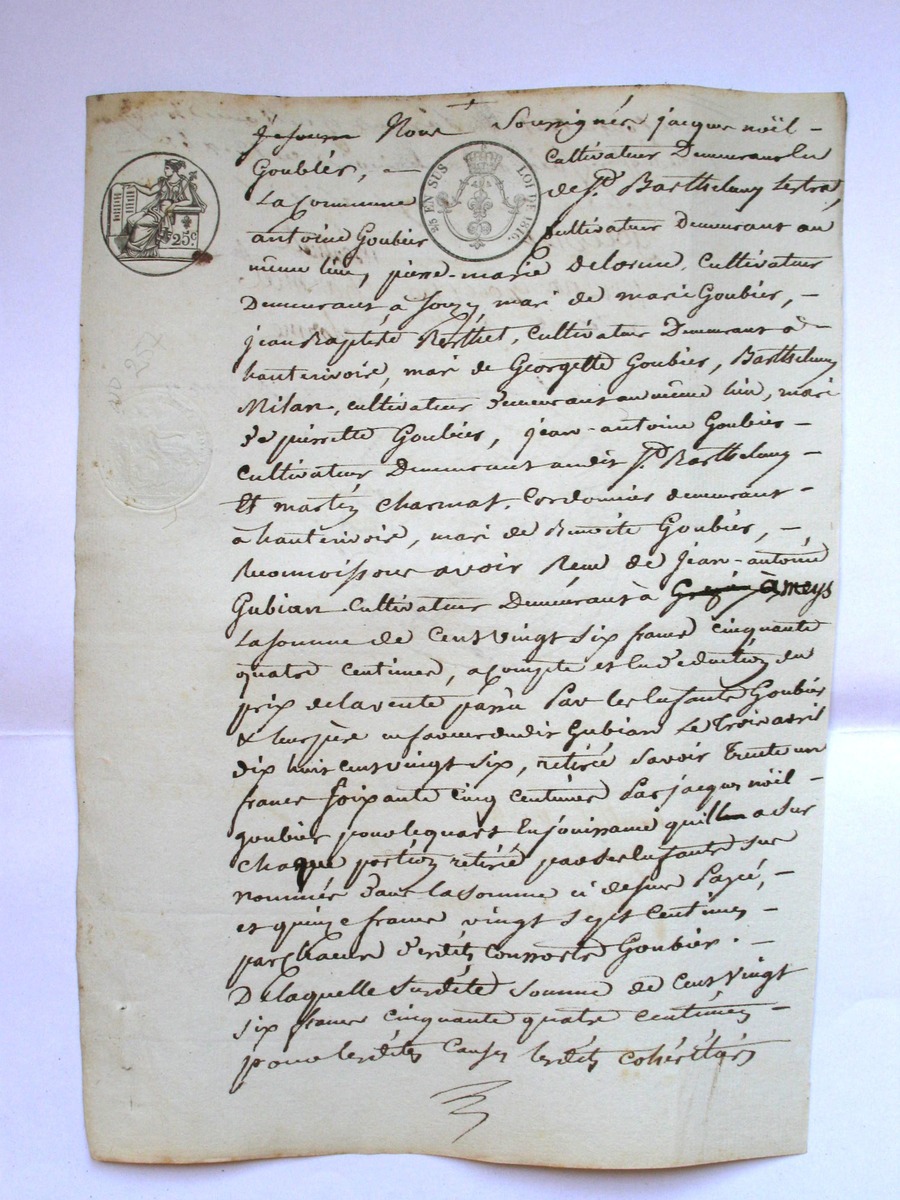 Je soussi Nous Soussignés jacques nöel -
Goubier, - Cultivateur Demeurant en
La Commune de St. Barthelemy Lestra,
antoine Goubier Cultivateur demeurant au
même lieu, pierre-marie delorme, Cultivateur
Demeurant à Souzy, mari de marie Goubier, -
jean Baptiste Berthet, Cultivateur Demeurant à
hauterivoire, mari de Georgette Goubier, Barthelemy
Milan, cultivateur demeurant au même lieu, mari
de pierrette Goubier, jean-antoine Goubier -
Cultivateur Demeurant audit St. Barthelemy -
Et martin Charmat, Cordonnier demeurant -
a hauterivoire, mari de Benoite Goubier, -
Reconnoissons avoir Reçu de jean-antoine
Gubian Cultivateur Demeurant à ameys
La somme de Cent vingt six francs cinquante
quatre centimes, acompte et en déduction du
prix de la vente passée Par les Enfants Goubier
& leur père en faveur dudit Gubian Le Trois avril
dix huit cent vingt six, retirée Savoir Trente un
francs soixante cinq centimes Par jacques nöel -
goubier pour le quart En jouissance qu'il a sur
Chaque portion retirée par ses Enfants sus
nommés dans la somme ci dessus Payée, -
et quinze francs vingt sept centimes -
par chacun desdits Consorts Goubier. -
De laquelle susdite somme de Cent Vingt
six francs cinquante quatre centimes -
pour lesdites Causes lesdits cohéritiers
25 EN SUS LOI DE 1816.
25c